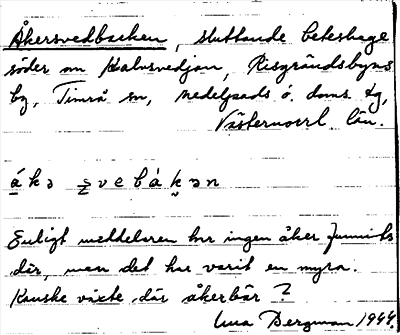 Åkersvedbacken, sluttande beteshage
söder om Kalvsvedjan, Risgrändsbyns
by, Timrå sn, Medelpads ö. doms. tg,
Västernorrl. län.
Enligt meddelaren har ingen åker funnits
där, men det har varit en myra.
Kanske växte där åkerbär?
Bergman 1944.